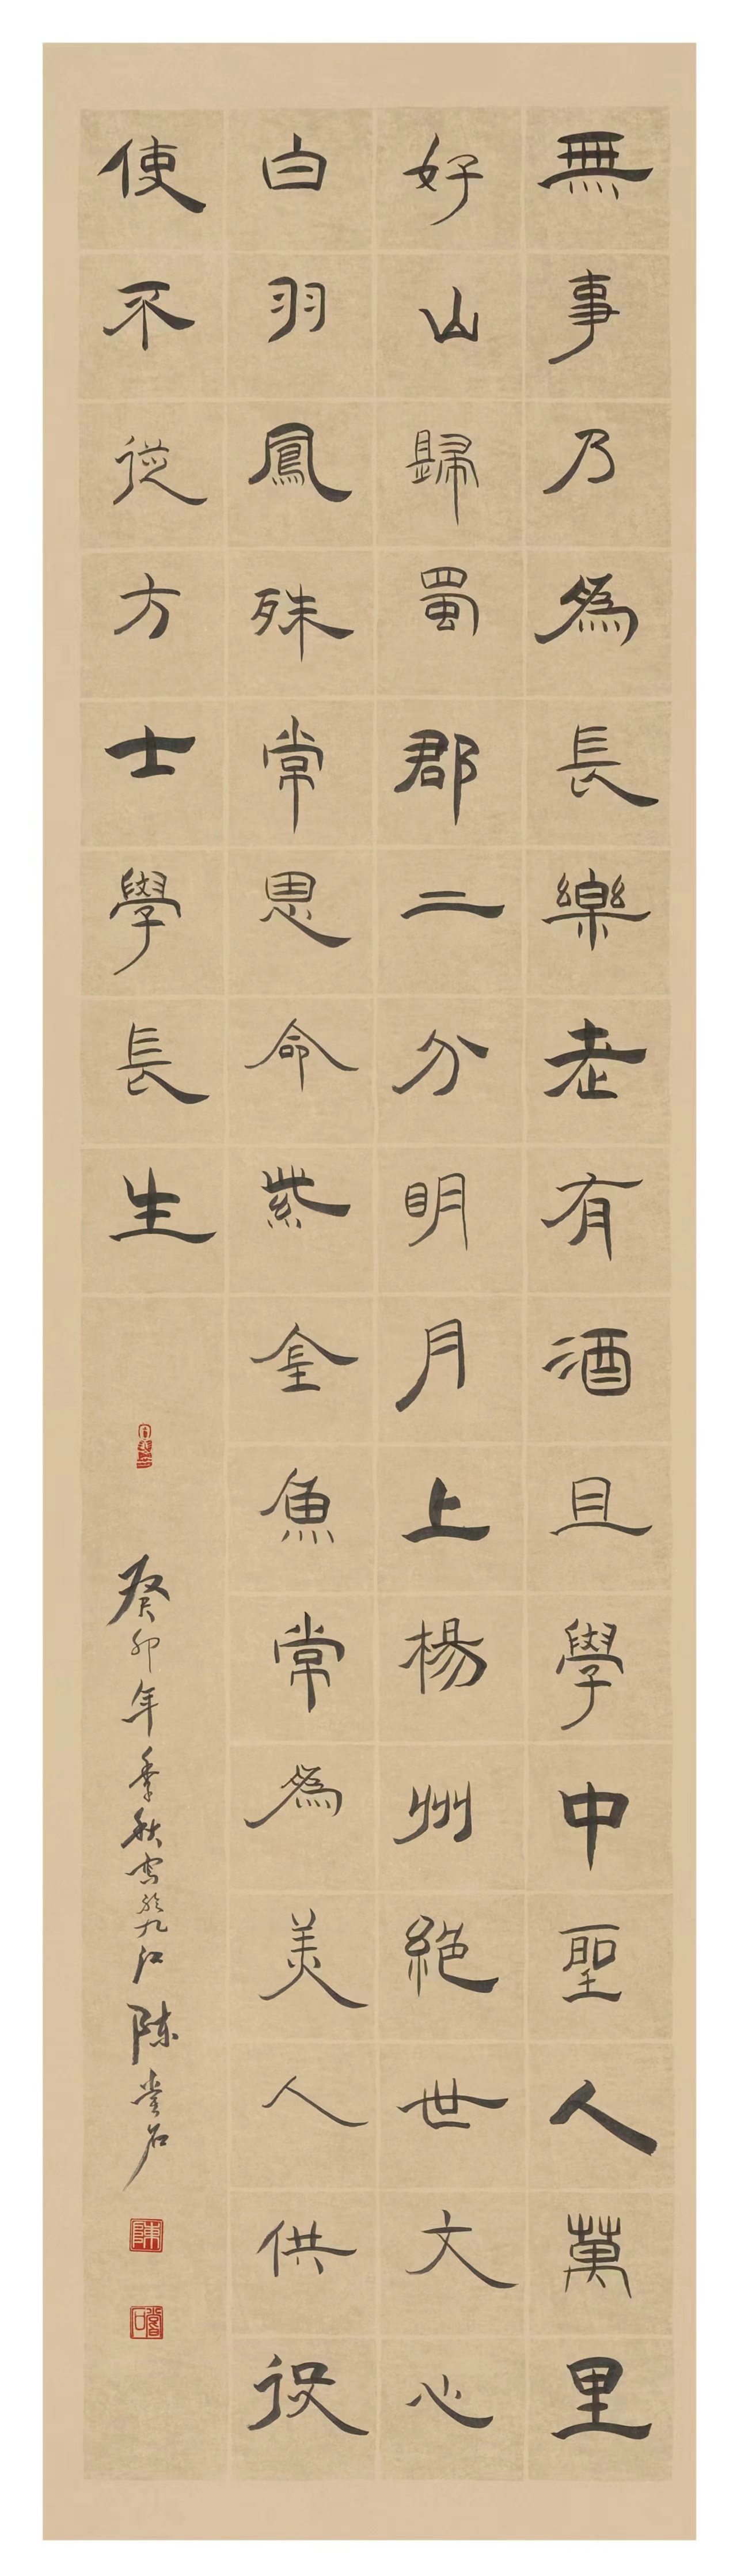 無事乃爲長樂老有酒且學中聖人萬里
好山歸蜀郡二分明月上楊州絕世文心
白羽鳳殊常思命紫金魚常爲美人供役
使不從方士學長生
癸卯年季秋寫於九江陳嘗石
陳
嘗石